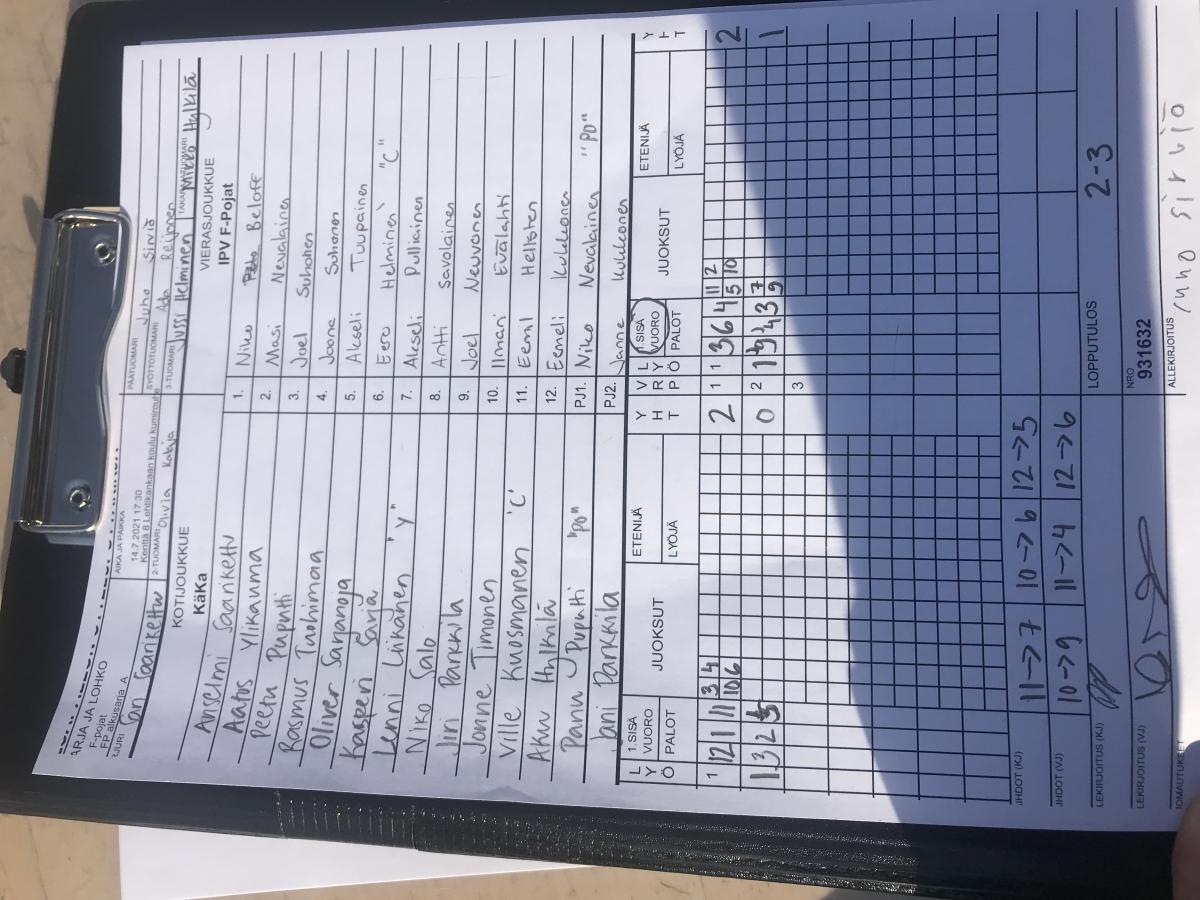 ARJA JA LOHKO
F-pojat
FP alkusarja A
AIKA JA PAIKKA
14.7.2021 17:30
Kenttä 8 Lehtikankaan koulu
PÄÄTUOMARI
Juho Sirviö
Saarikettu
2-TUOMARI
Olivia
SYÖTTÖTUOMARI
Ada Reijonen
3-TUOMARI
Jussi Helminen
TAKARAJATUOMARI
Mikko Hylkilä
KOTIJOUKKUE
VIERASJOUKKUE
KäKa
IPV F-Pojat
Anselmi Saarikettu 1. Niko Beloff
Aatos Ylikauma 2. Masi Nevalainen
Peetu Puputti 3. Joel Suhonen
Rasmus Tuohimaa 4. Joona Suhonen
Oliver Sarjanoja 5. Akseli Tuupainen
Kasperi Sarja 6. Eero Helminen "C"
Lenni Liikanen "Y" 7. Akseli Pulliainen
Niko Salo 8. Antti Savolainen
Jiri Parkkila 9. Joel Neuvonen
Janne Timonen 10. Ilmari Evälahti
Ville Kuosmanen 'C' 11. Eemil Hellsten
Ahu Hylkilä 12. Eemeli Kukkonen
Panu Puputti "PD" PJ1. Niko Nevalainen "PD"
Jani Parkkila PJ2. Janne Kukkonen
LYÖ 1.SISÄVUORO PALOT JUOKSUT ETENIJÄ LYÖJÄ YHT VRP LYÖ 1.SISÄVUORO PALOT JUOKSUT ETENIJÄ LYÖJÄ YHT
1 12 1 11 3 4 2 1 1 3 6 4 11 2 2
10 6 5 10
1 3 2 5 0 2 1 3 7 1
9
3
IHDOT (KJ) 11->7 10->6 12->5
IHDOT (VJ) 10->9 11->4 12->6
LEKIRJOITUS (KJ)
LOPPUTULOS 2-3
LEKIRJOITUS (VJ)
NRO
931632
ALLEKIRJOITUS
Juho Sirviö